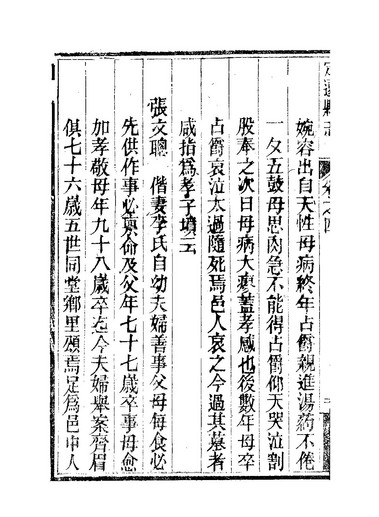 定遠縣志 卷之四
婉容出自天性母病終年占爵親進湯藥不倦
一夕五鼓母思肉急不能得占爵仰天哭泣割
股奉之次日母病大瘳蓋孝感也後數年母卒
占爵哀泣太過隨死焉邑人哀之今過其墓者
咸指爲孝子墳云
張文聰 偕妻李氏自幼夫婦善事父母每食必
先供作事必禀命及父年七十七歲卒事母愈
加孝敬母年九十八歲卒迄今夫婦舉案齊眉
俱七十六歲五世同堂鄉里頌焉足爲邑中人